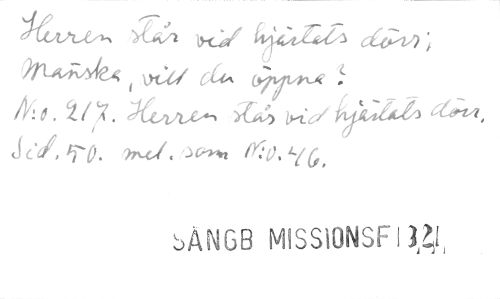 Herren står vid hjärtats dörr;
Mañska, vill du öppna?
N:o. 217. Herren står vid hjärtats dörr.
Sid. 50. mel. som N:o. 46.
SÅNGB MISSIONSF 1321